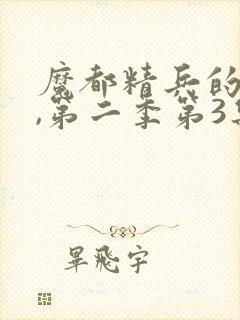 魔都精兵的
,第二季第3
畢飛宇